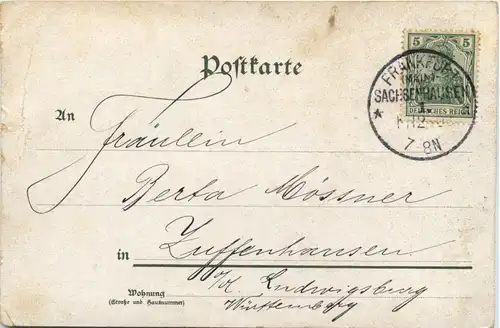 5 5
Postkarte
FRANKFURT
(MAIN)
SACHSENHAUSEN
DEUTSCHES REICH
1
12
7-8N
An
Fräulein
Berta Mössner
in Zuffenhausen
o/A. Ludwigsburg
Württemberg
Wohnung
(Straße und Hausnummer)